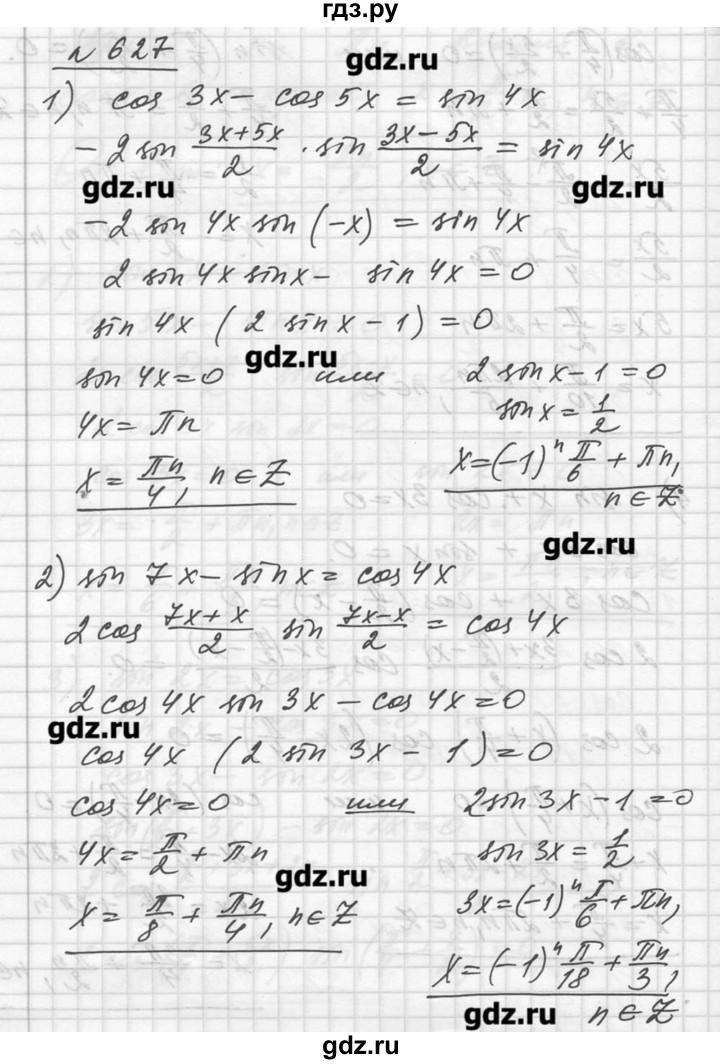 гдз.ру
№ 627
gdz.ru
1) cos 3x - cos 5x = sin 4x
-2 sin (3x+5x)/2 · sin (3x-5x)/2 = sin 4x
gdz.ru gdz.ru
-2 sin 4x sin (-x) = sin 4x
2 sin 4x sin x - sin 4x = 0
sin 4x (2 sin x - 1) = 0
gdz.ru
sin 4x = 0 или 2 sin x - 1 = 0
4x = πn sin x = 1/2
x = πn/4, n ∈ Z x = (-1)^n π/6 + πn,
n ∈ Z
gdz.ru
2) sin 7x - sin x = cos 4x
2 cos (7x+x)/2 sin (7x-x)/2 = cos 4x
2 cos 4x sin 3x - cos 4x = 0
gdz.ru
cos 4x (2 sin 3x - 1) = 0
cos 4x = 0 или 2 sin 3x - 1 = 0
4x = π/2 + πn sin 3x = 1/2
gdz.ru
x = π/8 + πn/4, n ∈ Z 3x = (-1)^n π/6 + πn,
x = (-1)^n π/18 + πn/3,
gdz.ru n ∈ Z
гдз.ру